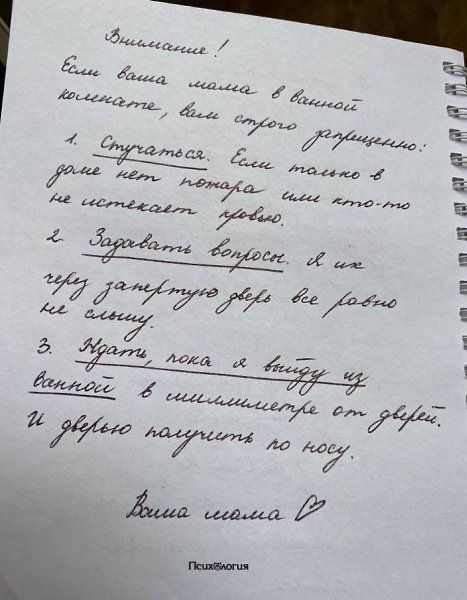 Внимание!
Если ваша мама в ванной
комнате, вам строго запрещенно:
1. Стучаться. Если только в
доме нет пожара или кто-то
не истекает кровью.
2. Задавать вопросы. Я их
через запертую дверь все равно
не слышу.
3. Ждать, пока я выйду из
ванной в миллиметре от дверей.
И дверью получить по носу.
Ваша мама ♡
Психология